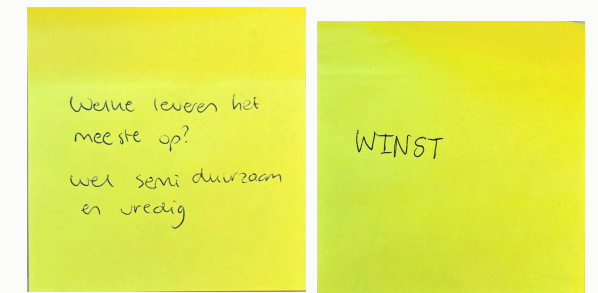 Welke leveren het
meeste op?
wel semi duurzaam
en vredig
WINST